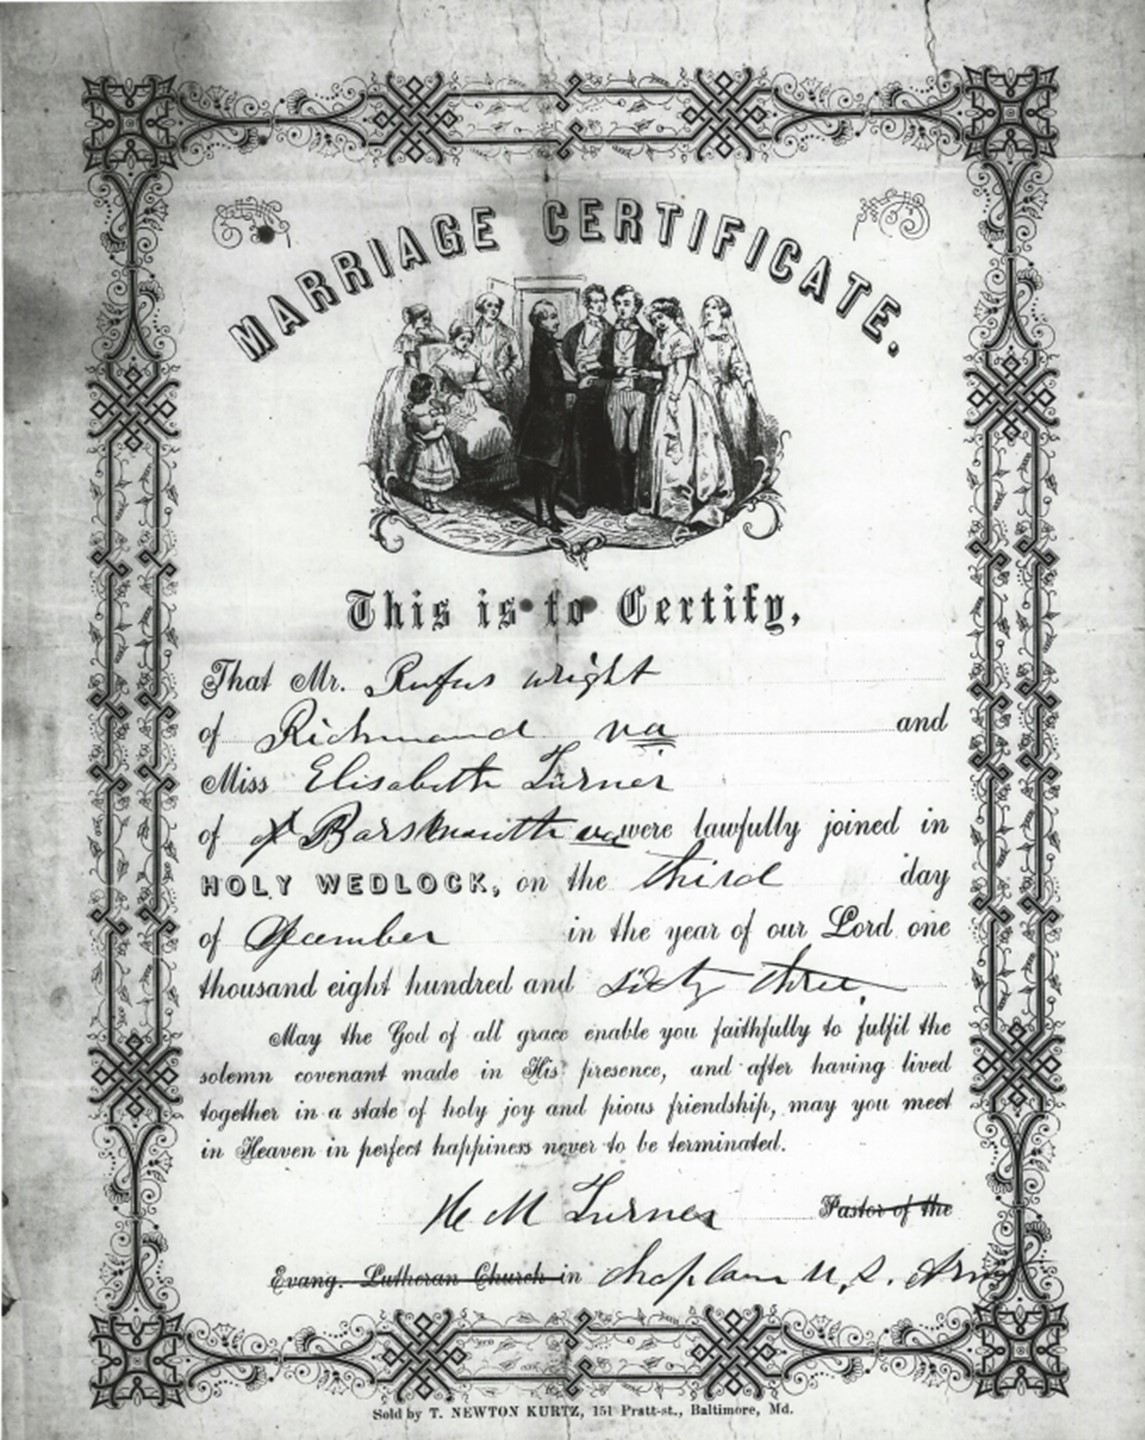 MARRIAGE CERTIFICATE.
This is to Certify,
That Mr. Rufus wright
of Richmond va and
Miss Elisabeth Turner
of were lawfully joined in
HOLY WEDLOCK, on the third day
of December in the year of our Lord one
thousand eight hundred and sixty three,
May the God of all grace enable you faithfully to fulfil the
solemn covenant made in His presence, and after having lived
together in a state of holy joy and pious friendship, may you meet
in Heaven in perfect happiness never to be terminated.
H M Turner Pastor of the
Evang. Lutheran Church in chaplain U, S. Army
Sold by T. NEWTON KURTZ, 151 Pratt-st., Baltimore, Md.